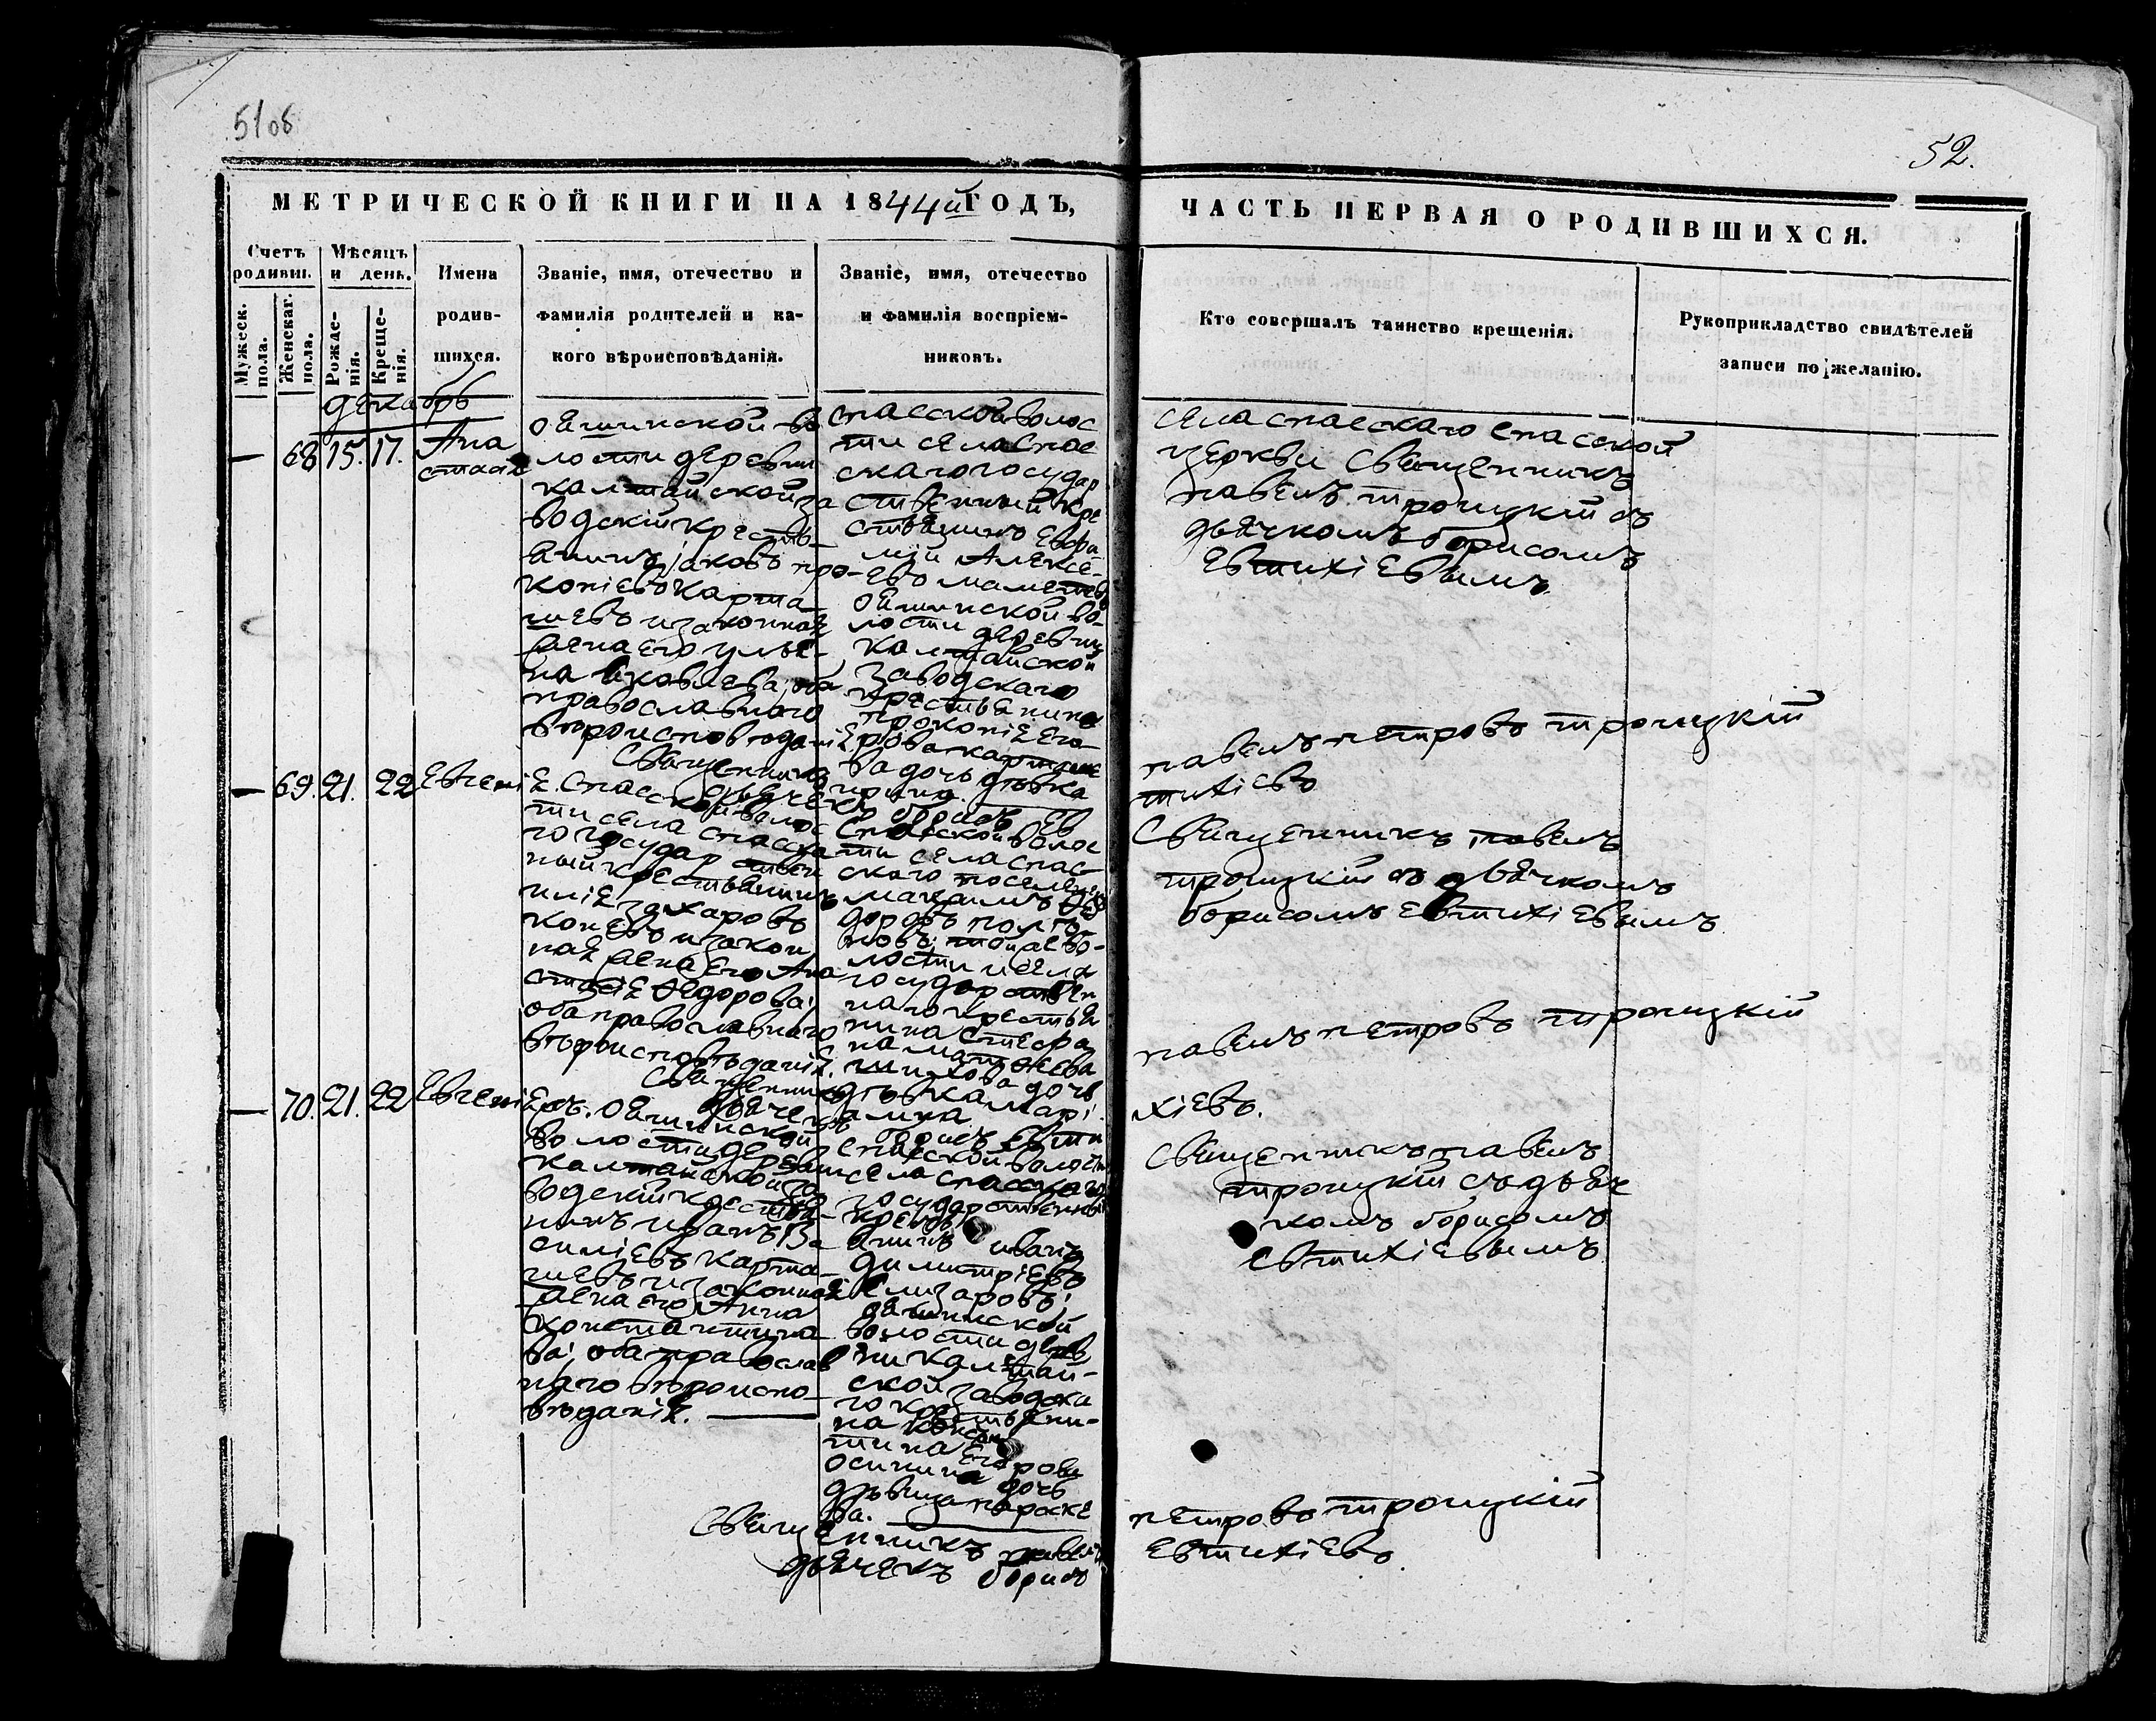 51об
52.
МЕТРИЧЕСКОЙ КНИГИ НА 1844й ГОДЪ,
ЧАСТЬ ПЕРВАЯ О РОДИВШИХСЯ.
Счетъ родивш.
Мужеск. пола.
Женскаг. пола.
Мѣсяцъ и день.
Рожде-
нія.
Креще-
нія.
Имена
родив-
шихся.
Званіе, имя, отечество и
фамилія родителей и ка-
кого вѣроисповѣданія.
Званіе, имя, отечество
и фамилія воспріем-
никовъ.
Кто совершалъ таинство крещенія.
Рукоприкладство свидѣтелей
записи по желанію.
декабрь
— 68 15. 17. Ана
стасія
ояшинской во
лости деревни
калтайской за
водскій крестья
янинъ іаковъ про-
копіевъ карта
шевъ и законная
жена его улья-
на яковлева, оба
православного
вѣроисповѣданія
спасской волос
ти села спас
скаго государ
ственный кре
стьянинъ евфи
мій Алексе-
евъ
ояшинской во-
лости деревни
калтайской
заводскаго
крестьянина
прокопія его
рова карташе
ва дочь дѣвка
ирина.
села спаскаго спасской
церкви священникъ
павелъ троицкій съ
дьячкомъ борисомъ
Евтихіевымъ
Священникъ павелъ петровъ троицкій
дьячекъ борисъ Ев
тихіевъ
— 69. 21. 22 Евгені
я. спасской волос
ти села спасска
го государствен
ный крестьянинъ
илія захаровъ
копевъ и закон
ная жена его Ана
стасія Ѳедорова;
оба православного
вѣроисповѣданія.
спасской волос
ти села спас-
скаго поселенецъ
максимъ Ѳе
доровъ
новъ; тояже во-
лости и села
государствен
наго крестья
нина стефа
на матѳеева
шихова дочь
дѣвка марі
амна
Священникъ павелъ
троицкій съ дьячкомъ
борисомъ Евтихіевымъ
Священникъ павелъ петровъ троицкій
дьячекъ борисъ Евти
хіевъ.
— 70. 21. 22 Евгені
я. ояшинской
волости деревни
калтайской за
водскій крестья-
нинъ иванъ Ва
силіевъ карта
шевъ и законная
жена его Анна
константино
ва; оба православ
наго вѣроиспо-
вѣданія.
спасской волости
села спасскаго
государственный
кресть
янинъ иванъ
димитріевъ
Елизаровъ;
ояшинской
волости дерев
ни калтай-
ской заводска
го крестьяни-
на констан
тина Егорова
осипина дочь
дѣвица параске
ва.
Священникъ павелъ
троицкій съ дьяч
комъ борисомъ
Евтихіевымъ
Священникъ павелъ петровъ троицкій
дьячекъ борисъ Евтихіевъ